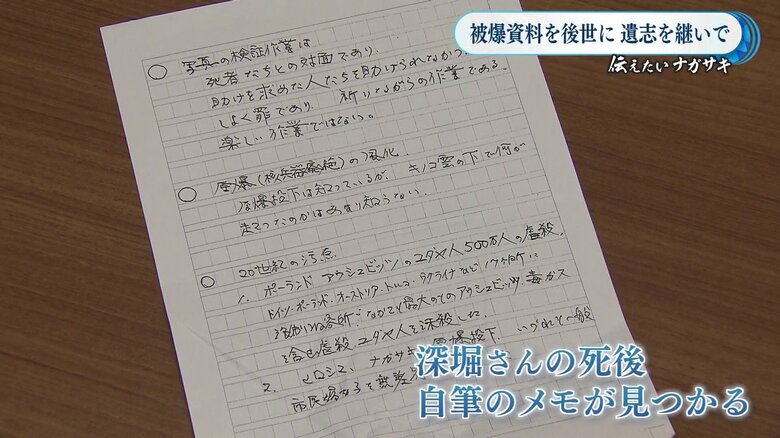 被爆資料を後世に 遺志を継いで
伝えたいナガサキ
写真の検証作業は
死者たちとの対面であり、
助けを求めた人たちを助けられなかった
しょく罪であり、祈りながらの作業である。
楽しい作業ではない。
原爆(核兵器廃絶)の風化
原爆投下は知っているが、キノコ雲の下で何が
起こったのかはあまり知らない。
20世紀の汚点
1. ポーランド アウシュビッツのユダヤ人500万人の虐殺。
ドイツ・ポーランド・オーストリア・トルコ・ウクライナなど
なかでも最大のアウシュビッツ、毒ガス
虐殺 ユダヤ人を抹殺した。
2. ヒロシマ、ナガサキ 原爆投下、いづれも一般
市民
深堀さんの死後
自筆のメモが見つかる